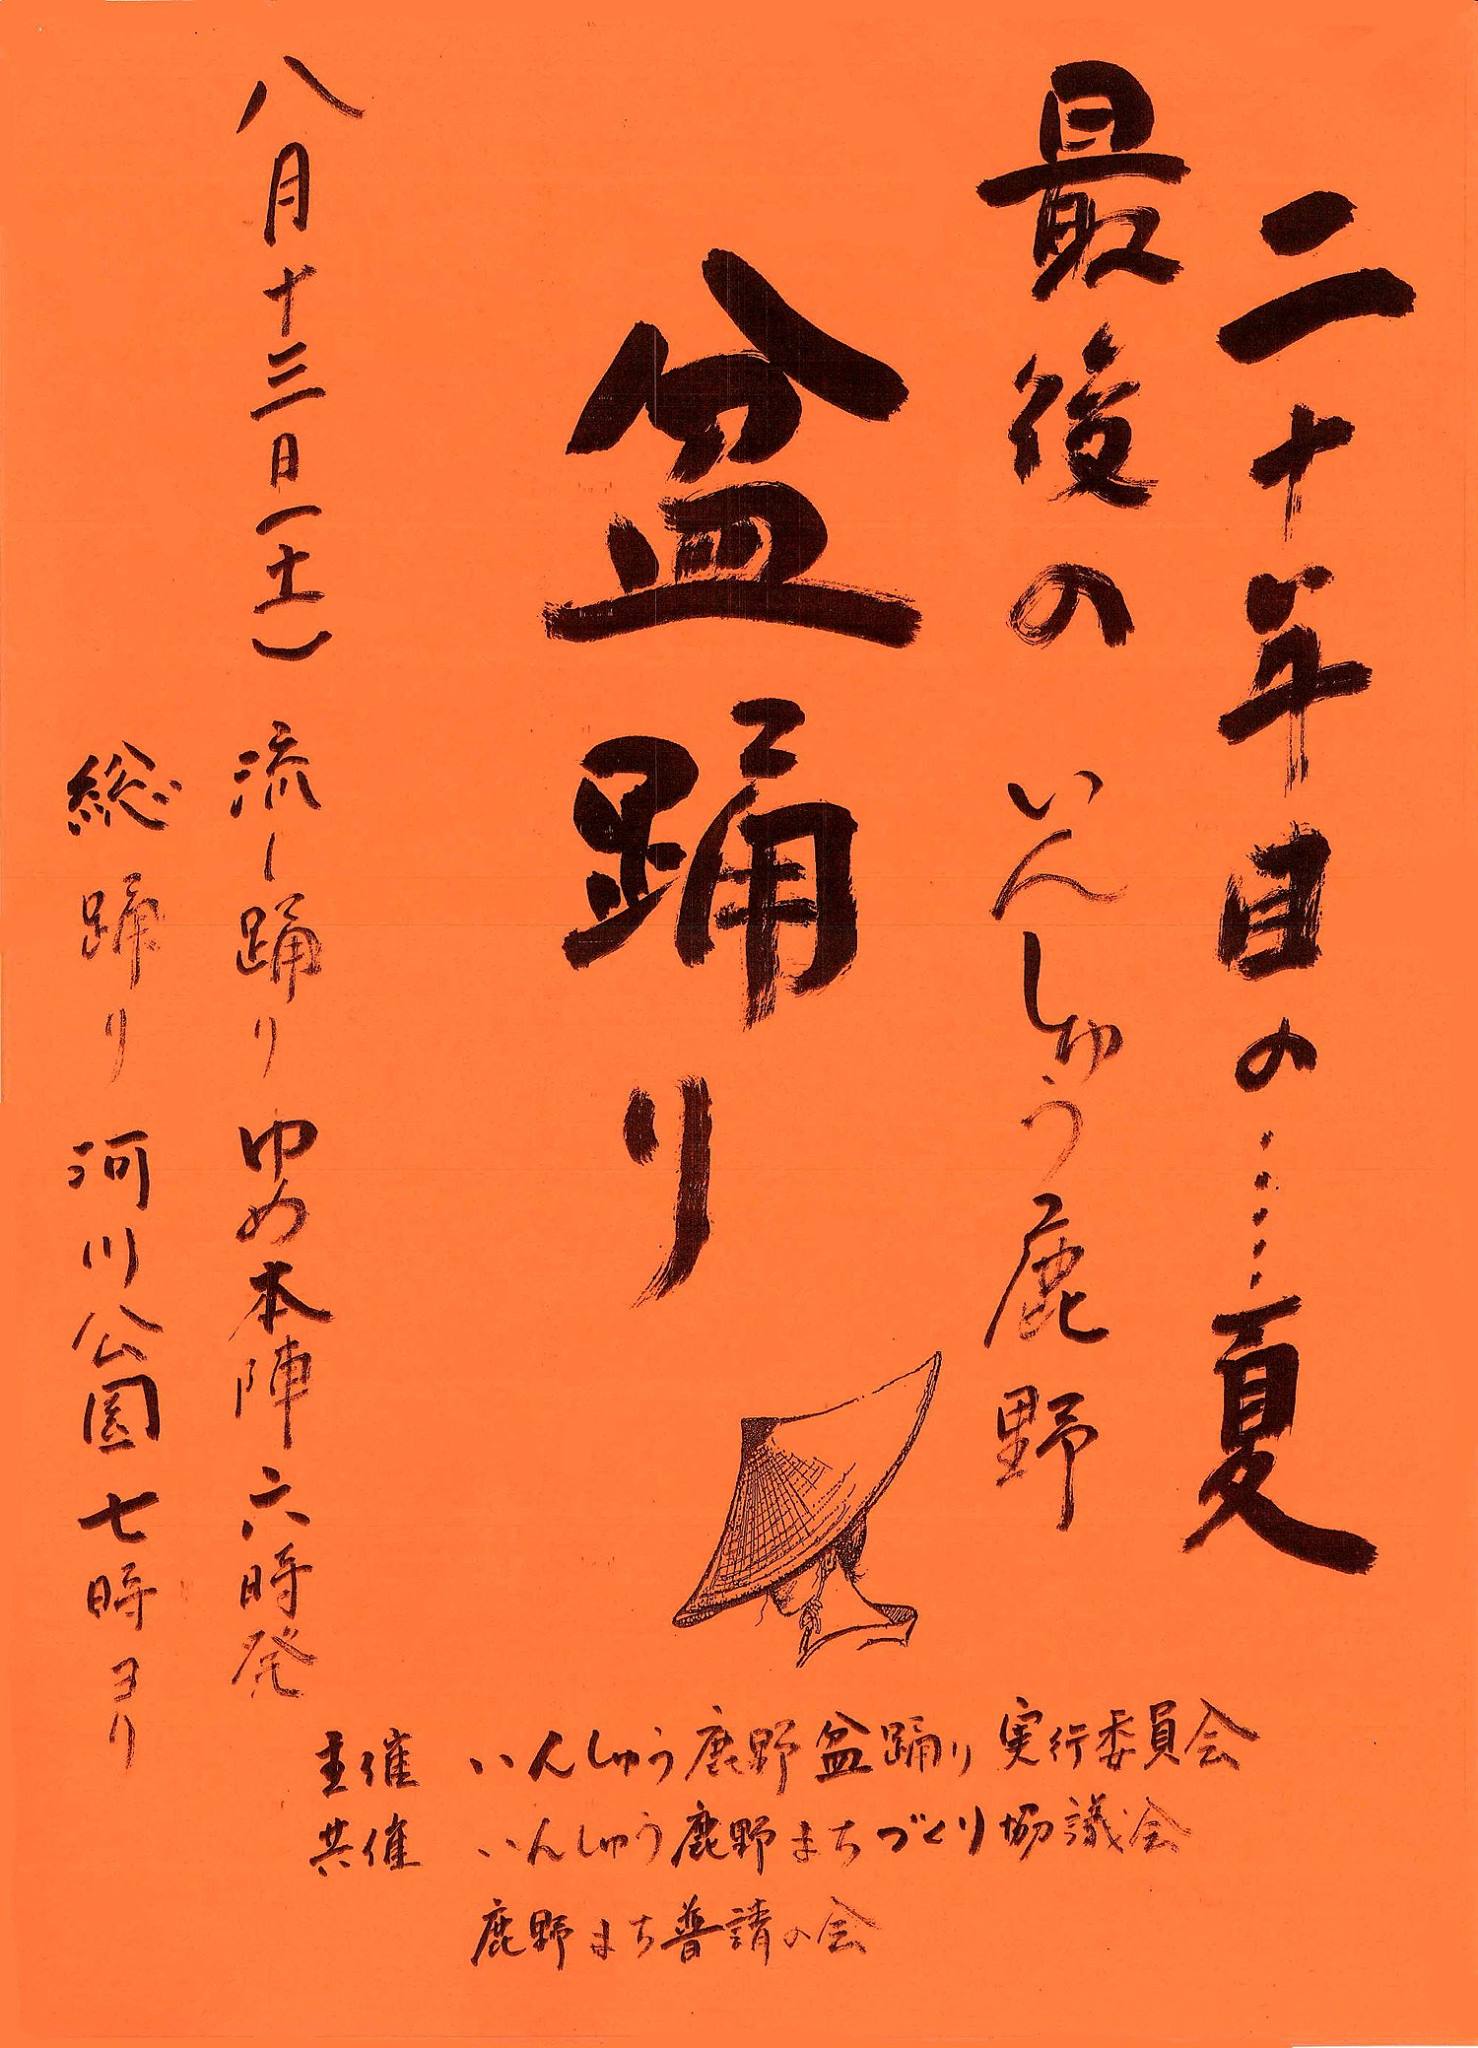 二十年目の……夏
最後の いんしゅう鹿野
盆踊り
八月十三日(土) 流し踊り ゆめ本陣 六時発
総踊り 河川公園 七時ヨリ
主催 いんしゅう鹿野盆踊り実行委員会
共催 いんしゅう鹿野まちづくり協議会
鹿野まち普請の会